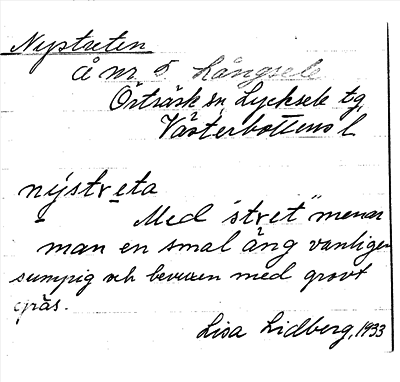 Nystreten
å nr 5 Långsele
Örträsk sn, Lycksele tg,
Västerbottens l
nystreta
Med "stret" menar
man en smal äng vanligen
sumpig och bevuxen med grovt
gräs.
Lisa Lidberg, 1933